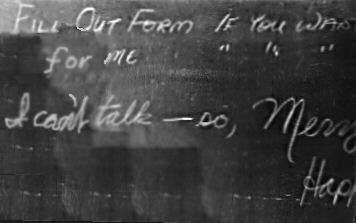 FILL OUT FORM IF YOU WAN
for me " " "
I can't talk — so, Merry
Happ